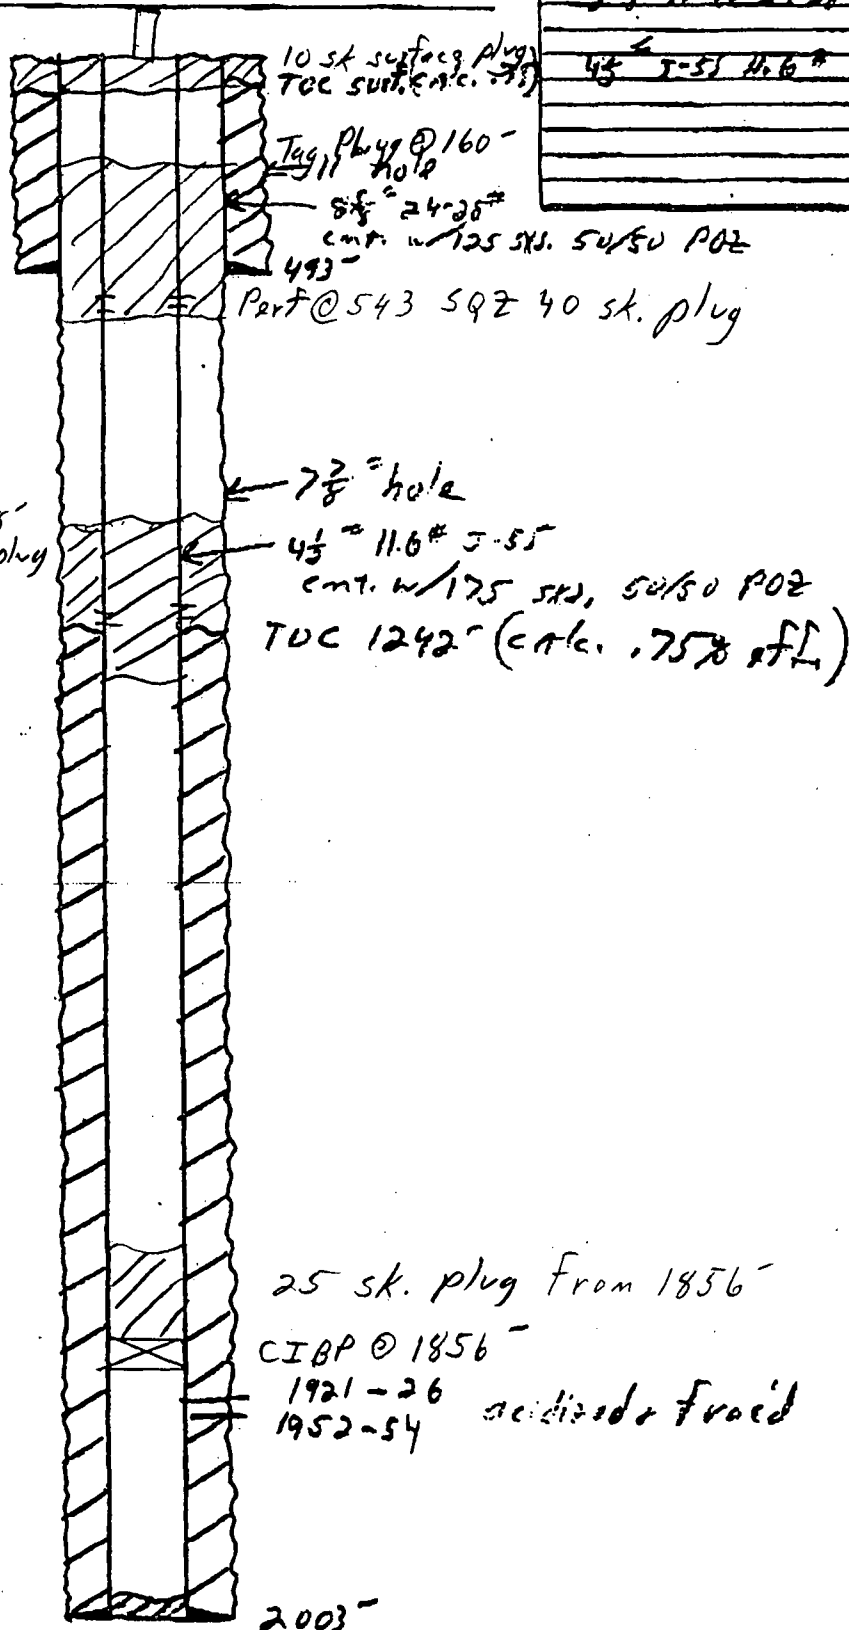 4½" J-55 11.6#
10 sk surface plug
TOC surf. (calc. .75)
Tag Plug @ 160'
11" hole
8⅝" 24-28#
cmt. w/125 sxs. 50/50 POZ
493'
Perf @ 543 SQZ 40 sk. plug
7⅞" hole
plug
4½" 11.6# J-55
cmt. w/175 sxs, 50/50 POZ
TOC 1242' (calc. .75% eff.)
25 sk. plug from 1856'
CIBP @ 1856'
1921-26
1952-54 acidized & frac'd
2003'